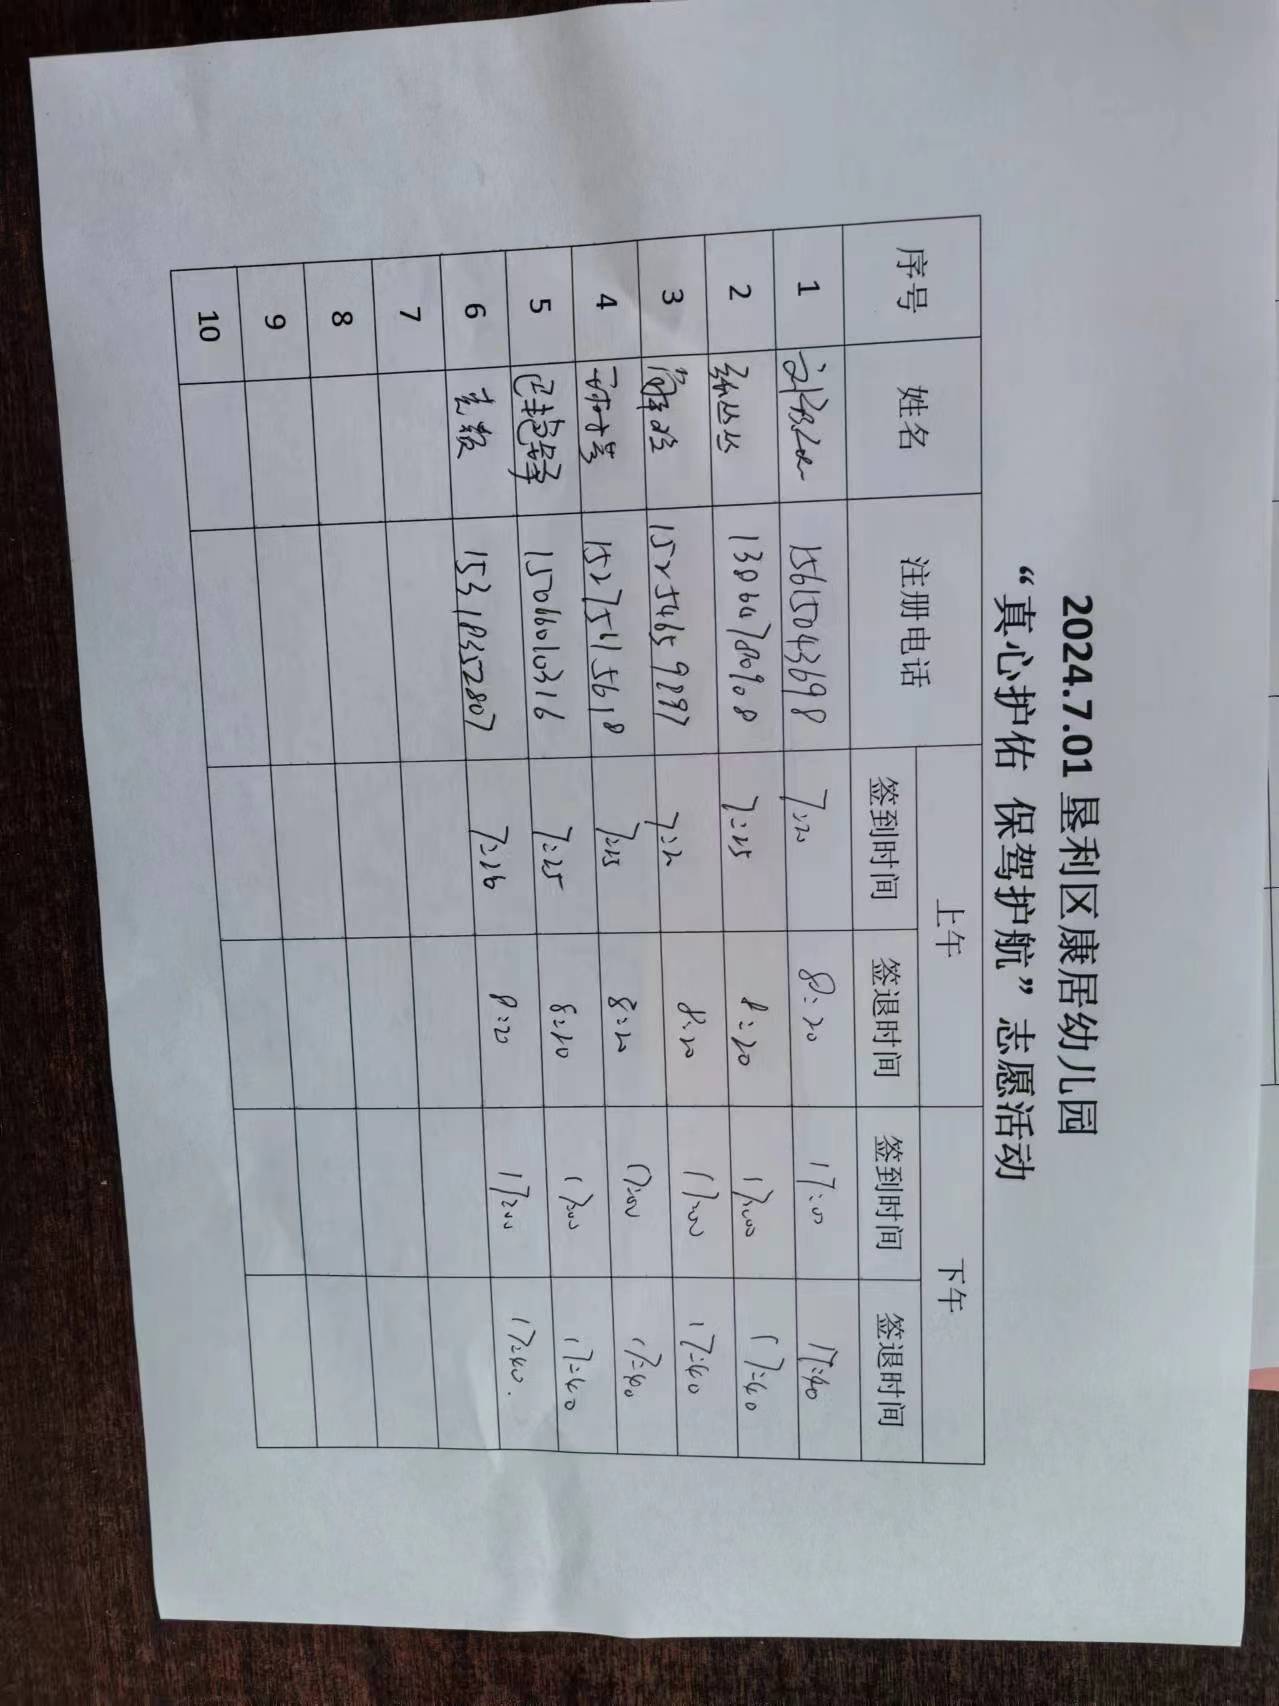 2024.7.01 垦利区康居幼儿园
“真心护佑 保驾护航”志愿活动
序号 姓名 注册电话 上午 下午
签到时间 签退时间 签到时间 签退时间
1 15615043698 7:20 8:20 17:00 17:40
2 丛丛 13864789908 7:25 8:20 17:00 17:40
3 15254659897 7:2 8:20 17:00 17:40
4 15275415618 7:25 8:20 17:00 17:40
5 巴艳锋 15066010316 7:25 8:20 17:00 17:40
6 15318352807 7:26 8:20 17:00 17:40.
7
8
9
10